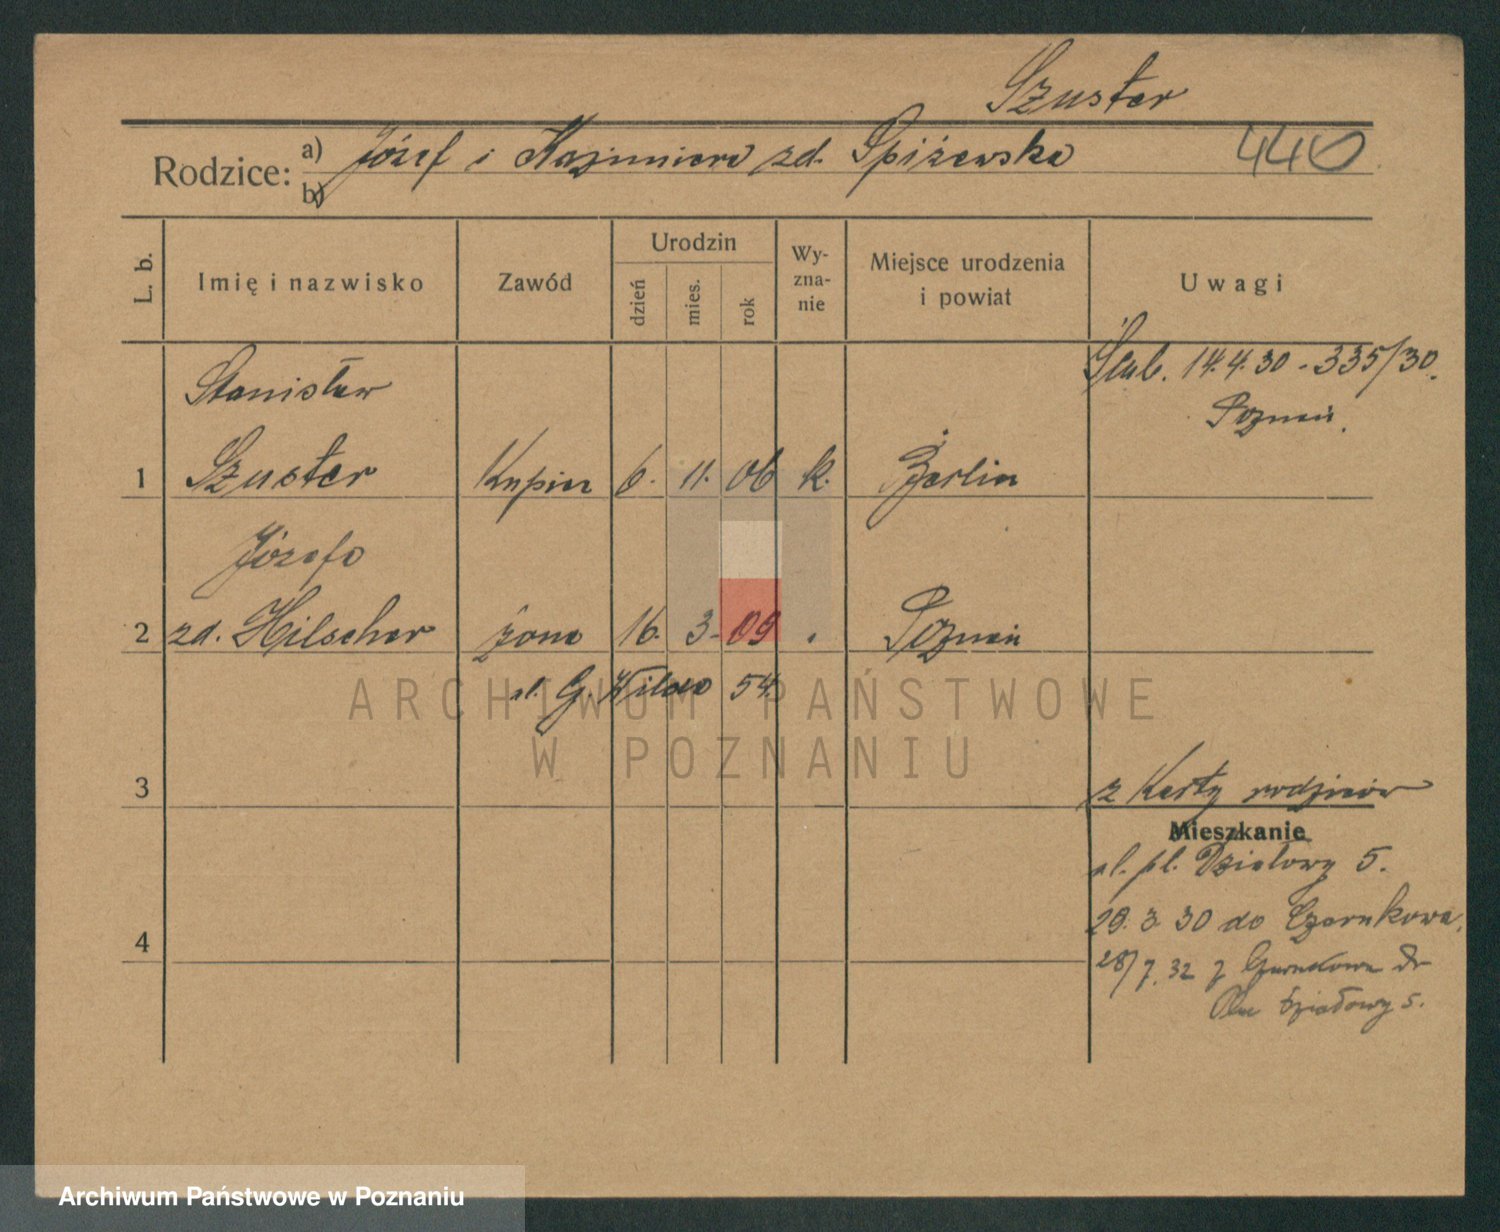 Szuster
Rodzice: a) Józef i Kazimiera zd. Spiżewska 440
b)
L. b. Imię i nazwisko Zawód Urodzin dzień mies. rok Wy-zna-nie Miejsce urodzenia i powiat Uwagi
Stanisław Ślub. 14.4.30 - 335/30.
Poznań.
1 Szuster Kupiec 6. 11. 06 k. Berlin
Józefa
2 zd. Hilscher żona 16. 3. 09 Poznań
ul. G. Wilda 54.
ARCHIWUM PAŃSTWOWE
W POZNANIU
3 z Karty rodziców
Mieszkanie
pl. Działowy 5.
29. 3. 30 do Czarnkowa.
4
28/7.32 z Czarnkowa
Działowy 5.
Archiwum Państwowe w Poznaniu